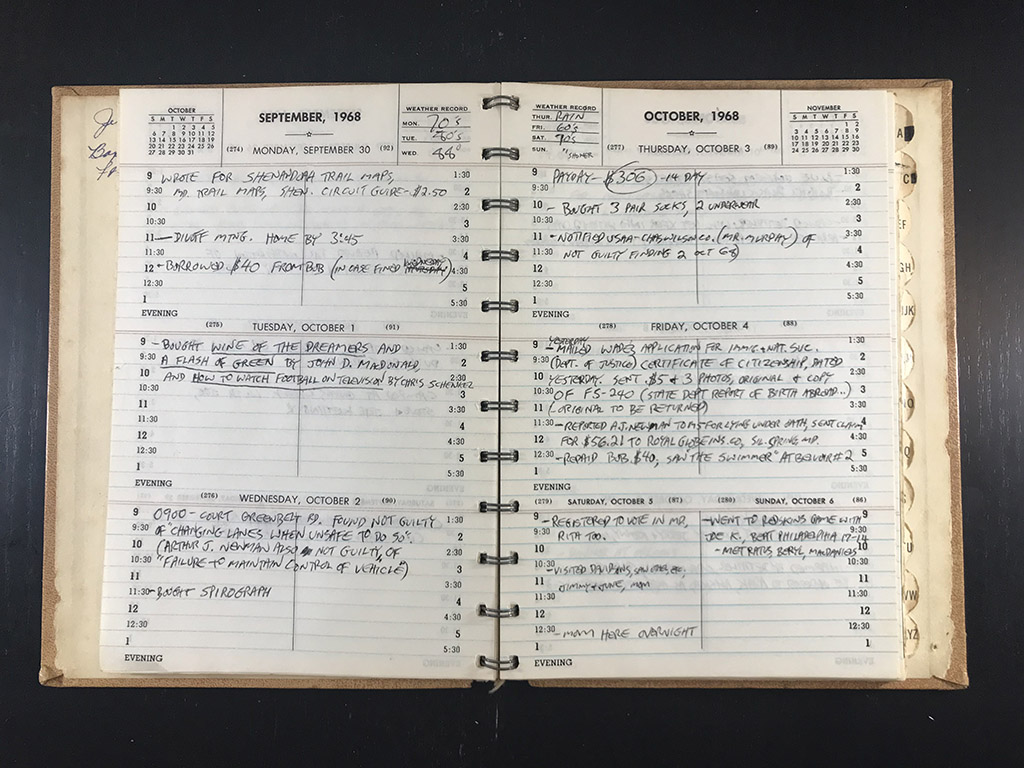 OCTOBER
S M T W T F S
1 2 3 4 5
6 7 8 9 10 11 12
13 14 15 16 17 18 19
20 21 22 23 24 25 26
27 28 29 30 31
SEPTEMBER, 1968
(274) MONDAY, SEPTEMBER 30 (92)
WEATHER RECORD
MON. 70's
TUE. 80's
WED. 88°
9 WROTE FOR SHENANDOAH TRAIL MAPS, 1:30
9:30 MD. TRAIL MAPS, SHEN. CIRCUIT GUIDE-$2.50 2
10 2:30
10:30 3
11 - MTNG. HOME BY 3:45 3:30
11:30 4
12 - BORROWED $40 FROM BOB (IN CASE FINED WEDNESDAY THURSDAY) 4:30
12:30 5
1 5:30
EVENING
(275) TUESDAY, OCTOBER 1 (91)
9 - BOUGHT WINE OF THE DREAMERS AND 1:30
9:30 A FLASH OF GREEN BY JOHN D. MACDONALD, 2
10 AND HOW TO WATCH FOOTBALL ON TELEVISION BY CHRIS SCHENKEL 2:30
10:30 3
11 3:30
11:30 4
12 4:30
12:30 5
1 5:30
EVENING
(276) WEDNESDAY, OCTOBER 2 (90)
9 0900 - COURT GREENBELT MD. FOUND NOT GUILTY 1:30
9:30 OF "CHANGING LANES WHEN UNSAFE TO DO SO". 2
10 (ARTHUR J. NEWMAN ALSO NOT GUILTY, OF 2:30
10:30 "FAILURE TO MAINTAIN CONTROL OF VEHICLE") 3
11 3:30
11:30 - BOUGHT SPIROGRAPH 4
12 4:30
12:30 5
1 5:30
EVENING
WEATHER RECORD
THUR. RAIN
FRI. 60's
SAT. 70's
SUN. "
OCTOBER, 1968
(277) THURSDAY, OCTOBER 3 (89)
NOVEMBER
S M T W T F S
1 2
3 4 5 6 7 8 9
10 11 12 13 14 15 16
17 18 19 20 21 22 23
24 25 26 27 28 29 30
9 PAYDAY - $306 - 14 DAY 1:30
9:30 2
10 - BOUGHT 3 PAIR SOCKS, 2 UNDERWEAR 2:30
10:30 3
11 - NOTIFIED USAA - CHAS WILSON CO. (MR. MURPHY) OF 3:30
11:30 NOT GUILTY FINDING 2 OCT 68) 4
12 4:30
12:30 5
1 5:30
EVENING
(278) FRIDAY, OCTOBER 4 (88)
YESTERDAY
9 - MAILED WADE'S APPLICATION FOR IMMIG & NAT. SVC. 1:30
9:30 (DEPT. OF JUSTICE) CERTIFICATE OF CITIZENSHIP, DATED 2
10 YESTERDAY. SENT $5 & 3 PHOTOS, ORIGINAL & COPY 2:30
10:30 OF FS-240 (STATE DEPT REPORT OF BIRTH ABROAD...) 3
11 (ORIGINAL TO BE RETURNED) 3:30
11:30 - REPORTED A.J. NEWMAN TO FOR LYING UNDER OATH, SENT CLAIM 4
12 FOR $56.21 TO ROYAL GLOBE INS. CO, SIL. SPRING MD. 4:30
12:30 - REPAID BOB $40, SAW "THE SWIMMER" AT BELVOIR #2 5
1 5:30
EVENING
(279) SATURDAY, OCTOBER 5 (87)
9 - REGISTERED TO VOTE IN MD,
9:30 RITA TOO.
10
10:30 - VISITED
11 JIMMY & JUNE, MOM
11:30
12
12:30 - MOM HERE OVERNIGHT
1
EVENING
(280) SUNDAY, OCTOBER 6 (86)
- WENT TO REDSKINS GAME WITH 9
JOE K., BEAT PHILADELPHIA 17-14 9:30
- MET RATIS, BERYL, 10
10:30
11
11:30
12
12:30
1
A
C
EF
GH
IJK
YZ